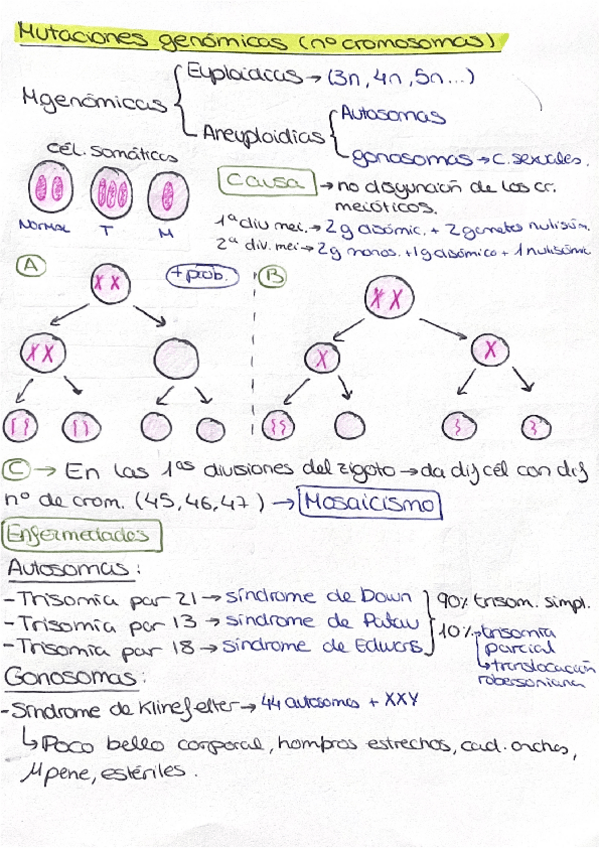 Mutaciones genómicas (nº cromosomas)
Euploidias → (3n, 4n, 5n...)
Mgenómicas
Aneuploidias
Autosomas
gonosomas → c. sexuales.
cél. somáticas
NORMAL T M
Causa → no disyunción de los cr.
meióticos.
1ª div mei. → 2g disómic. + 2 gametos nulisóm.
2ª div. mei → 2g monos. + 1g disómico + 1 nulisómic
A + prob. B
C → En las 1as divisiones del zigoto → da dif cél con dif
nº de crom. (45, 46, 47) → Mosaicismo
Enfermedades
Autosomas:
- Trisomia par 21 → síndrome de Down
- Trisomia par 13 → síndrome de Patau
- Trisomia par 18 → síndrome de Edwars
90% trisom. simpl.
10% → trisomia
parcial
↳ translocación
robersoniana
Gonosomas:
- Síndrome de Klinefelter → 44 autosomas + XXY
↳ Poco bello corporal, hombros estrechos, cad. anchas,
μ pene, estériles.